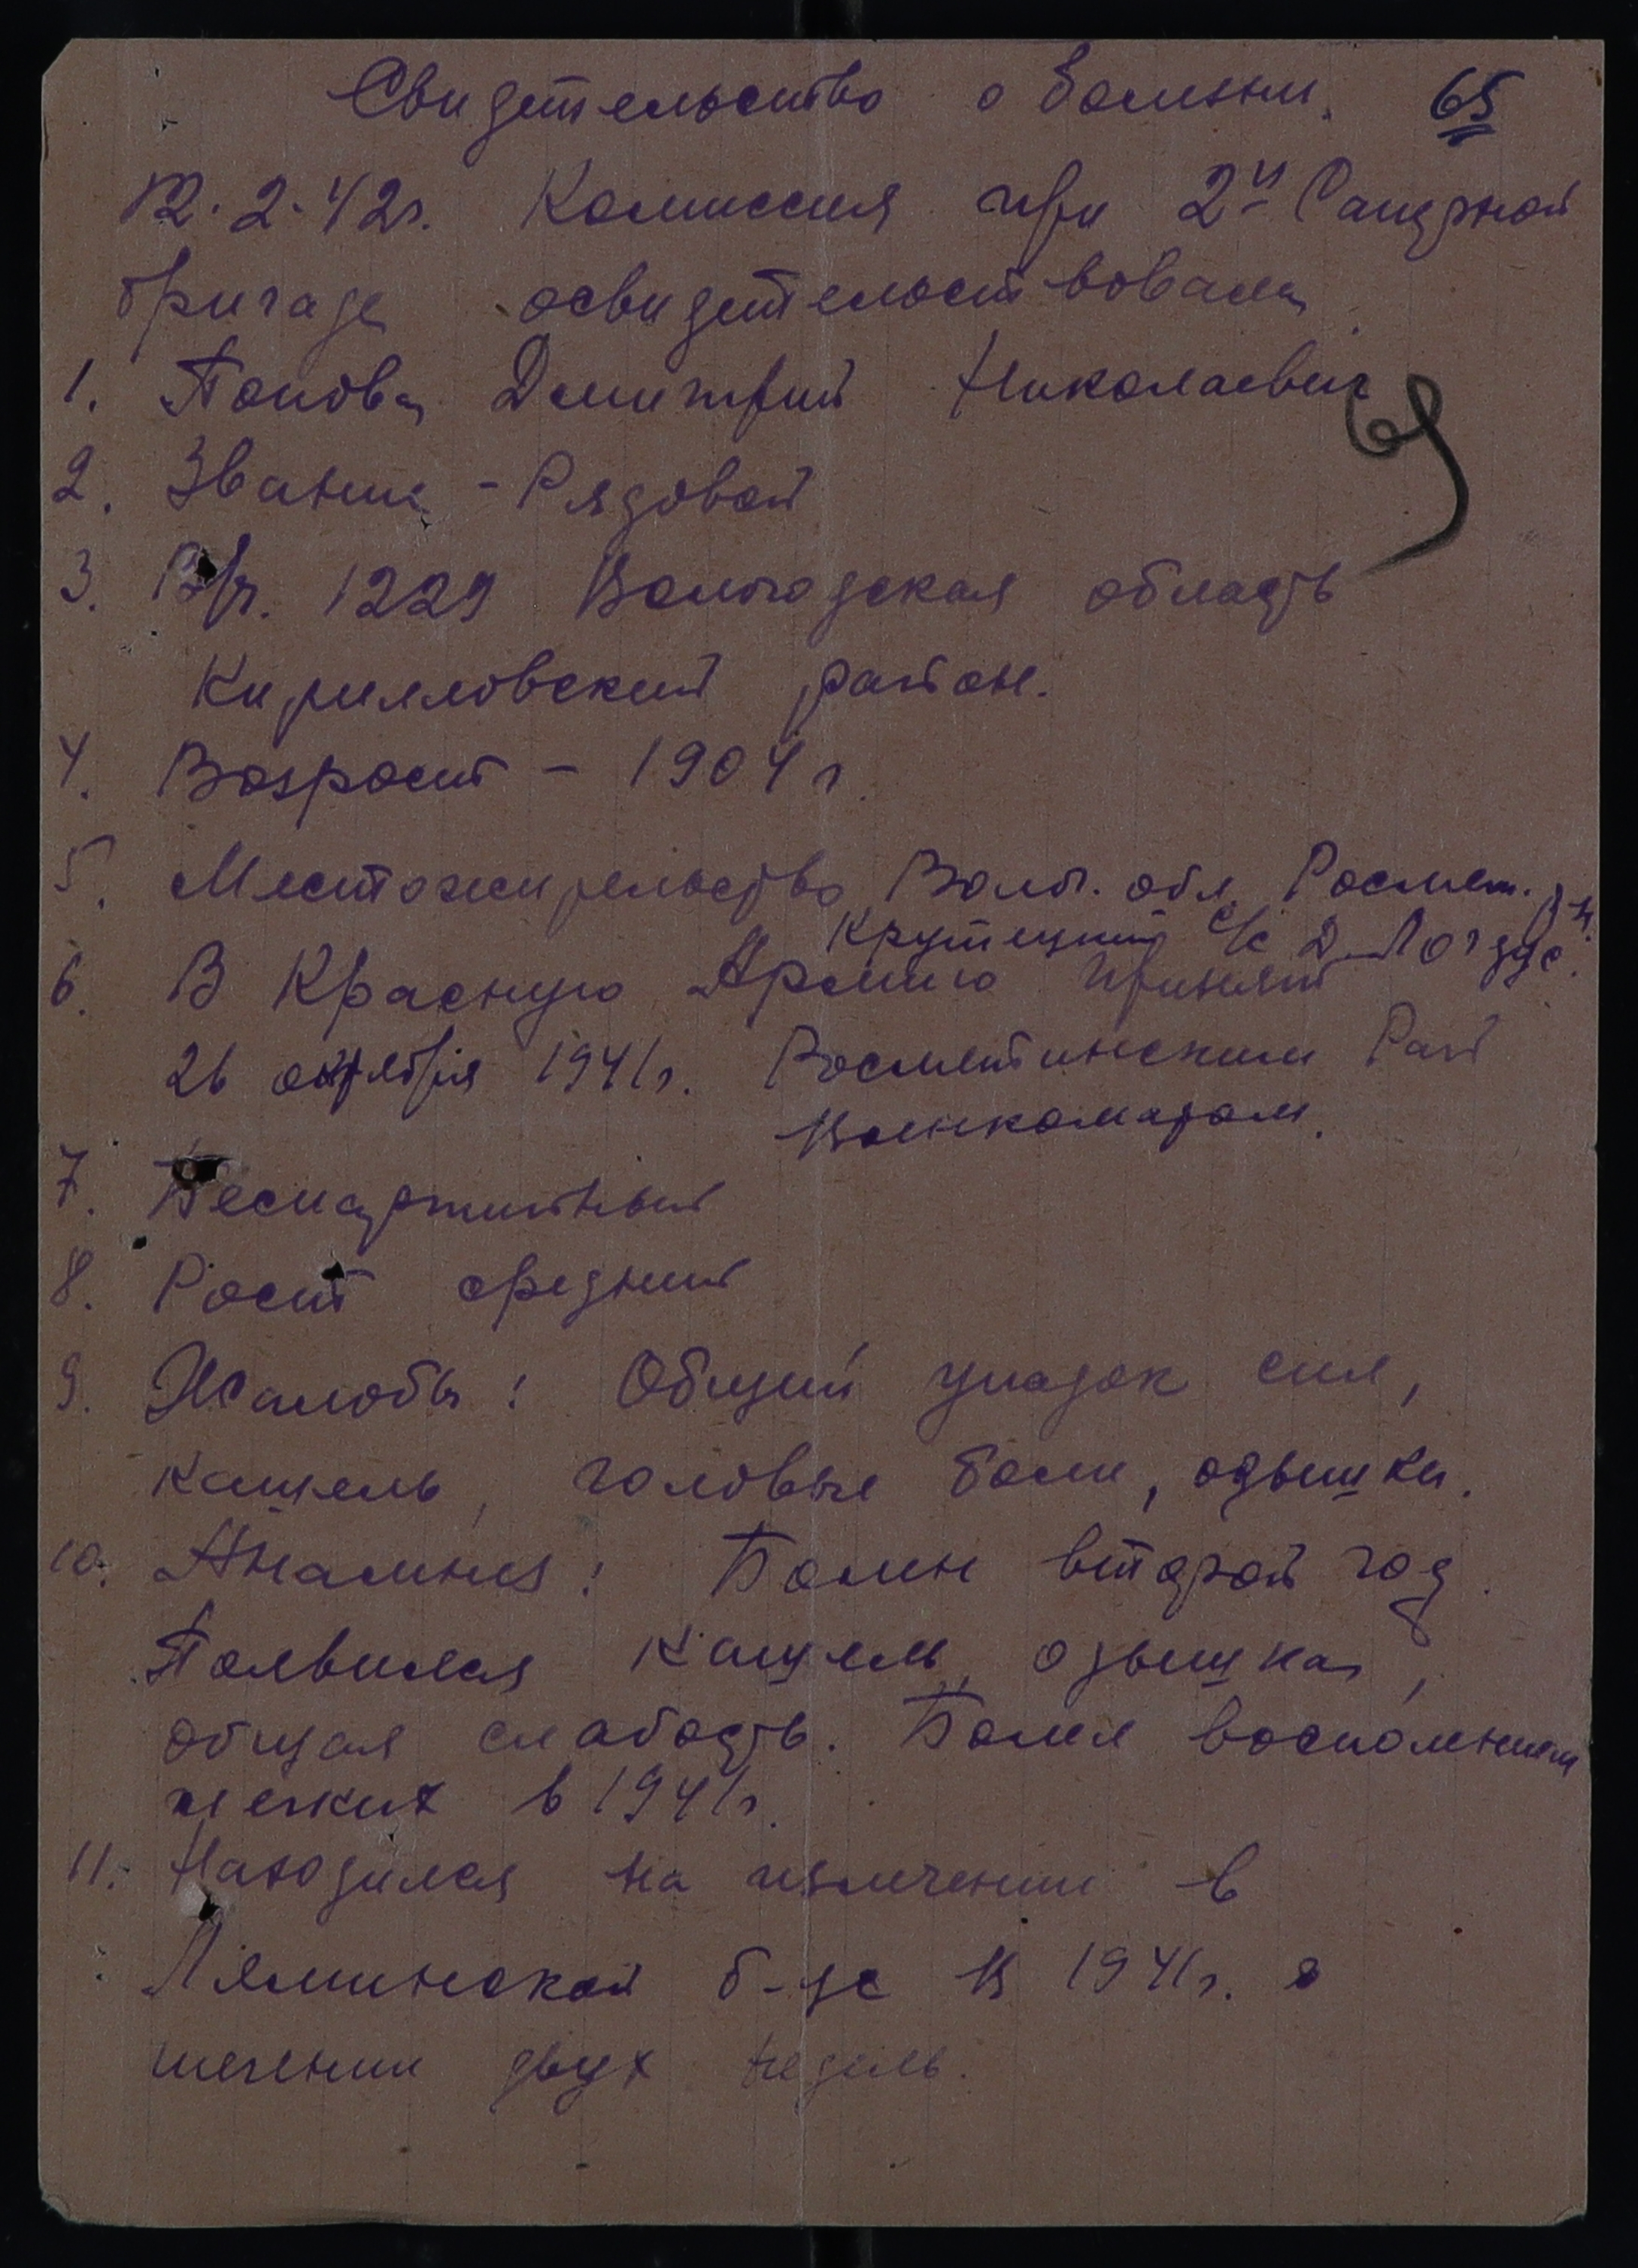 Свидетельство о болезни. 65
12.2.42г. Комиссия при 2й Саперной
бригаде освидетельствовала
1. Попова Дмитрий Николаевич
69
2. Звание - Рядовой
3. В/ч. 1229 Вологодская область
Кирилловский район.
4. Возраст - 1904 г.
5. Местожительство Волог. обл.
Крутецкий с/с Д.
6. В Красную Армию принят
26 октября 1941г. Рай
Военкоматом.
7. Беспартийный
8. Рост средний
9. Жалобы: Общий упадок сил,
кашель, головные боли, одышка.
10. Анамнез: Болен второй год.
Появился кашель, одышка,
общая слабость. Болел воспалением
легких в 1941г.
11. Находился на излечении в
Ляминской б-це в 1941г. в
течении двух недель.